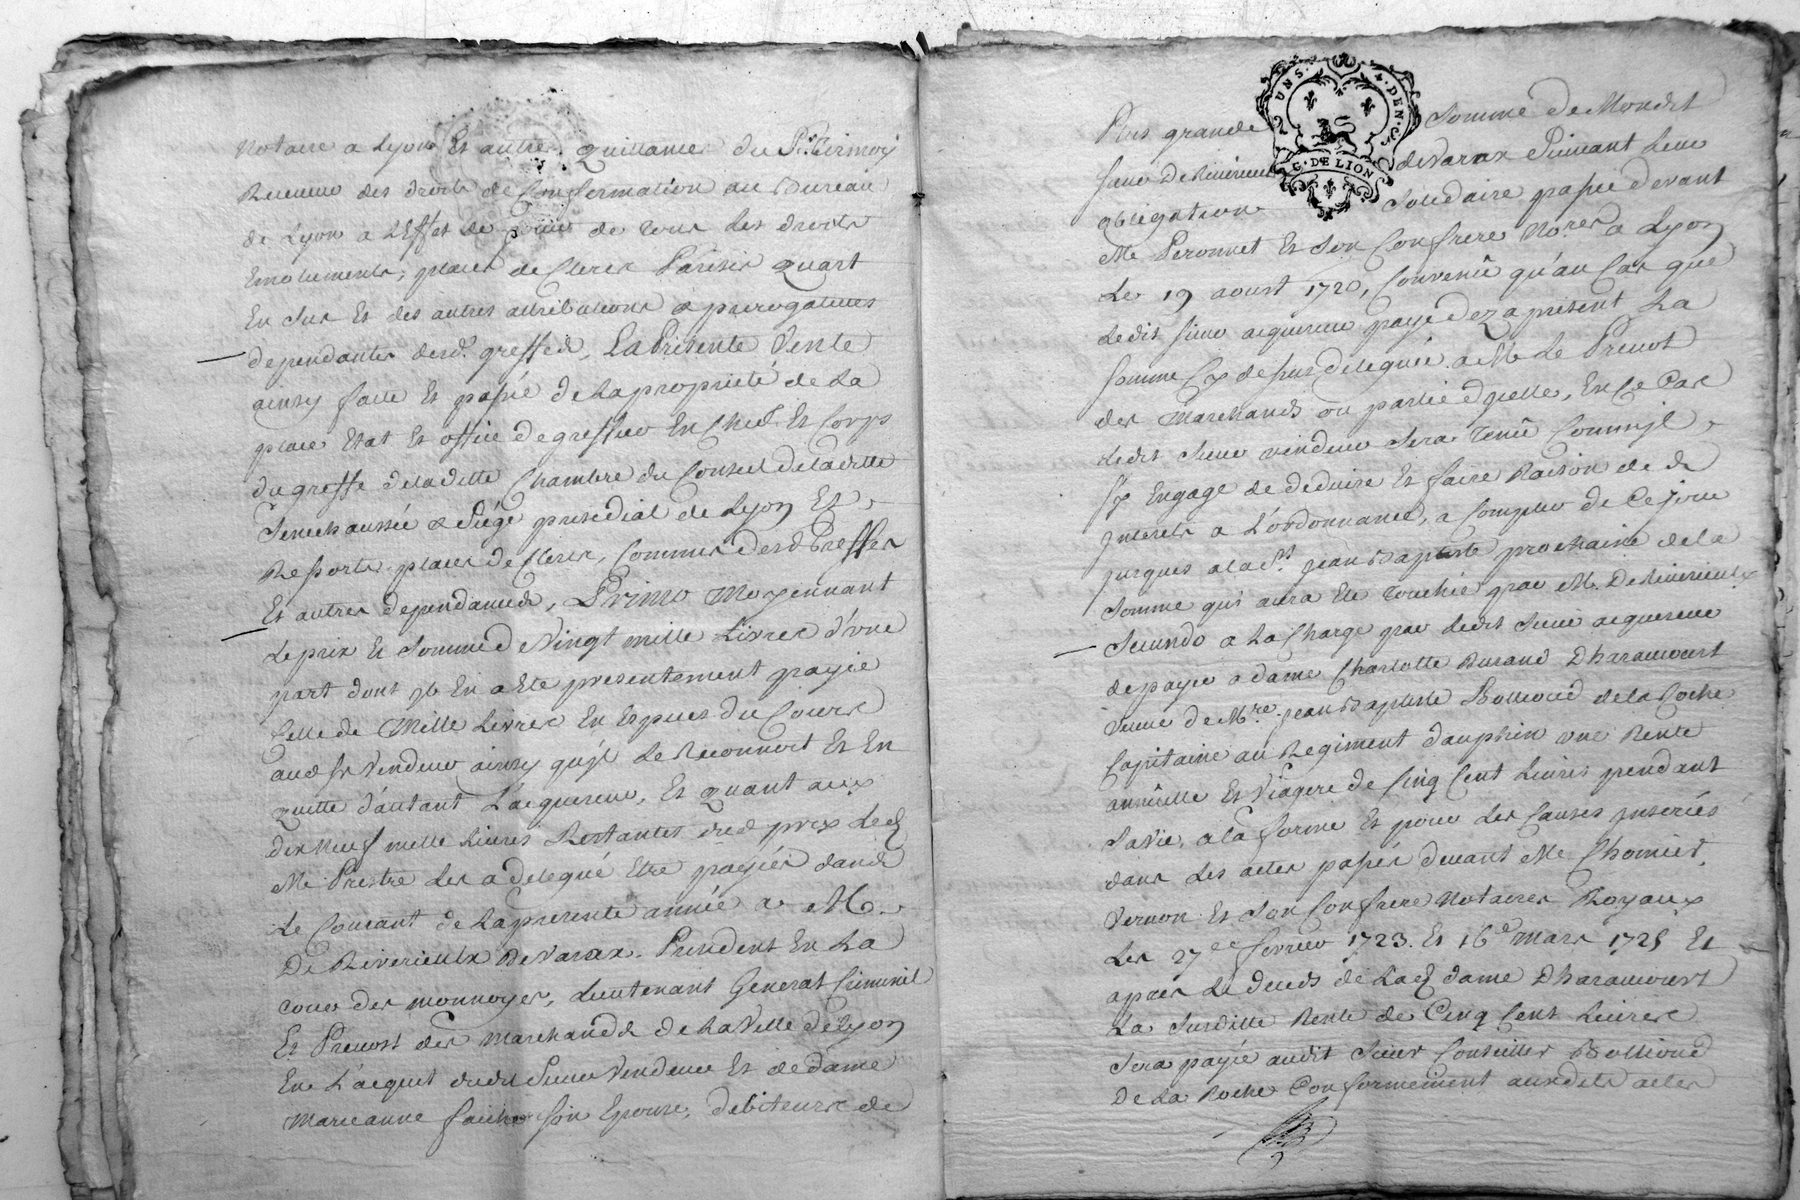 Notaire a Lyon Et autre quittance du Sr.
Receveur des droits de Confirmation au Bureau
de Lyon a L'Effet de jouir de tous Les droits
Emoluments, places de Clercs Parisis quart
En Sus Et des autres attributions & prerogatives
dependantes desd. greffes, La Presente Vente
ainsy faitte Et passée de La proprieté de La
place Etat Et office de greffier En Chef Et Corps
du greffe de laditte Chambre du Conseil de laditte
Senechaussée & Siége presidial de Lyon Et
Ressorts places de Clercs, Commis desd. Greffes
Et autres dependances, Primo Moyennant
Le prix Et Somme de Vingt mille Livres d'une
part dont il En a Eté presentement payée
Celle de Mille Livres En Especes du Cours
aud. Sr Vendeur ainsy qu'il Le Reconnoit Et En
quitte d'autant L'acquereur, Et quant aux
dix Neuf mille Livres Restantes dud. prix Led.
Me Prestre Les a delegué Etre payées dans
Le Courant de La presente année a M.
De Riverieulx De Varax President En La
cour des monnoyes, Lieutenant General Criminel
Et Prevost des Marchands de La Ville de Lyon
En L'acquit dudit Sieur Vendeur Et de dame
Marieanne son Epouse, debiteurs de
Plus grande Somme de Mondit
sieur De Riverieulx de Varax Suivant Leur
obligation Solidaire passée devant
Me Peronnet Et Son Confrere Nores a Lyon
Le 19 aoust 1720, Convenû qu'au Cas que
Ledit sieur acquereur paye dez a present La
somme Cy dessus deleguée a M. Le Prevot
des Marchands ou partie d'ycelles, En Ce Cas
Ledit Sieur vendeur Sera tenû Comme il
s'y Engage de deduire Et faire Raison de
Interets a L'ordonnance, a Compter de Ce jour
jusques a la St. jean Baptiste prochaine de la
Somme qui aura Eté touchée par M. De Riverieulx
Secundo a La Charge par Ledit Sieur acquereur
de payer a dame Charlotte Durand Dharaucourt
veuve de Mre. jean Baptiste Bollioud de la Roche
Capitaine au Regiment dauphin une Rente
annuelle Et Viagere de Cinq Cent Livres pendant
Sa vie, a la forme Et pour Les Causes Inserées
dans Les actes passés devant Me Chomier
Vernon Et Son Confrere Notaires Royaux
Les 27e fevrier 1723. Et 16e mars 1725 Et
apres Le deceds de Lad. dame Dharaucourt
La Susditte Rente de Cinq Cent Livres
Sera payée audit Sieur Conseiller Bollioud
De La Roche Conformement auxdits actes
2 UNS. 4. DEN. G. DE LION